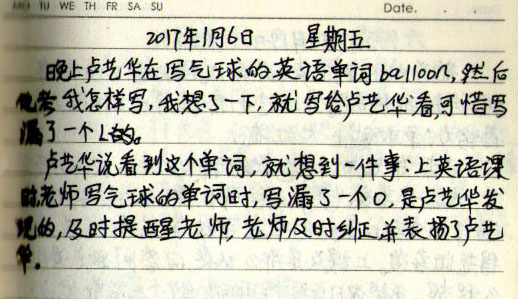 MO TU WE TH FR SA SU Date.
2017年1月6日 星期五
晚上卢艺华在写气球的英语单词balloon,然后
他考我怎样写,我想了一下,就写给卢艺华看,可惜写
漏了一个L的。
卢艺华说看到这个单词,就想到一件事:上英语课
时老师写气球的单词时,写漏了一个O,是卢艺华发
现的,及时提醒老师,老师及时纠正并表扬了卢艺
华。